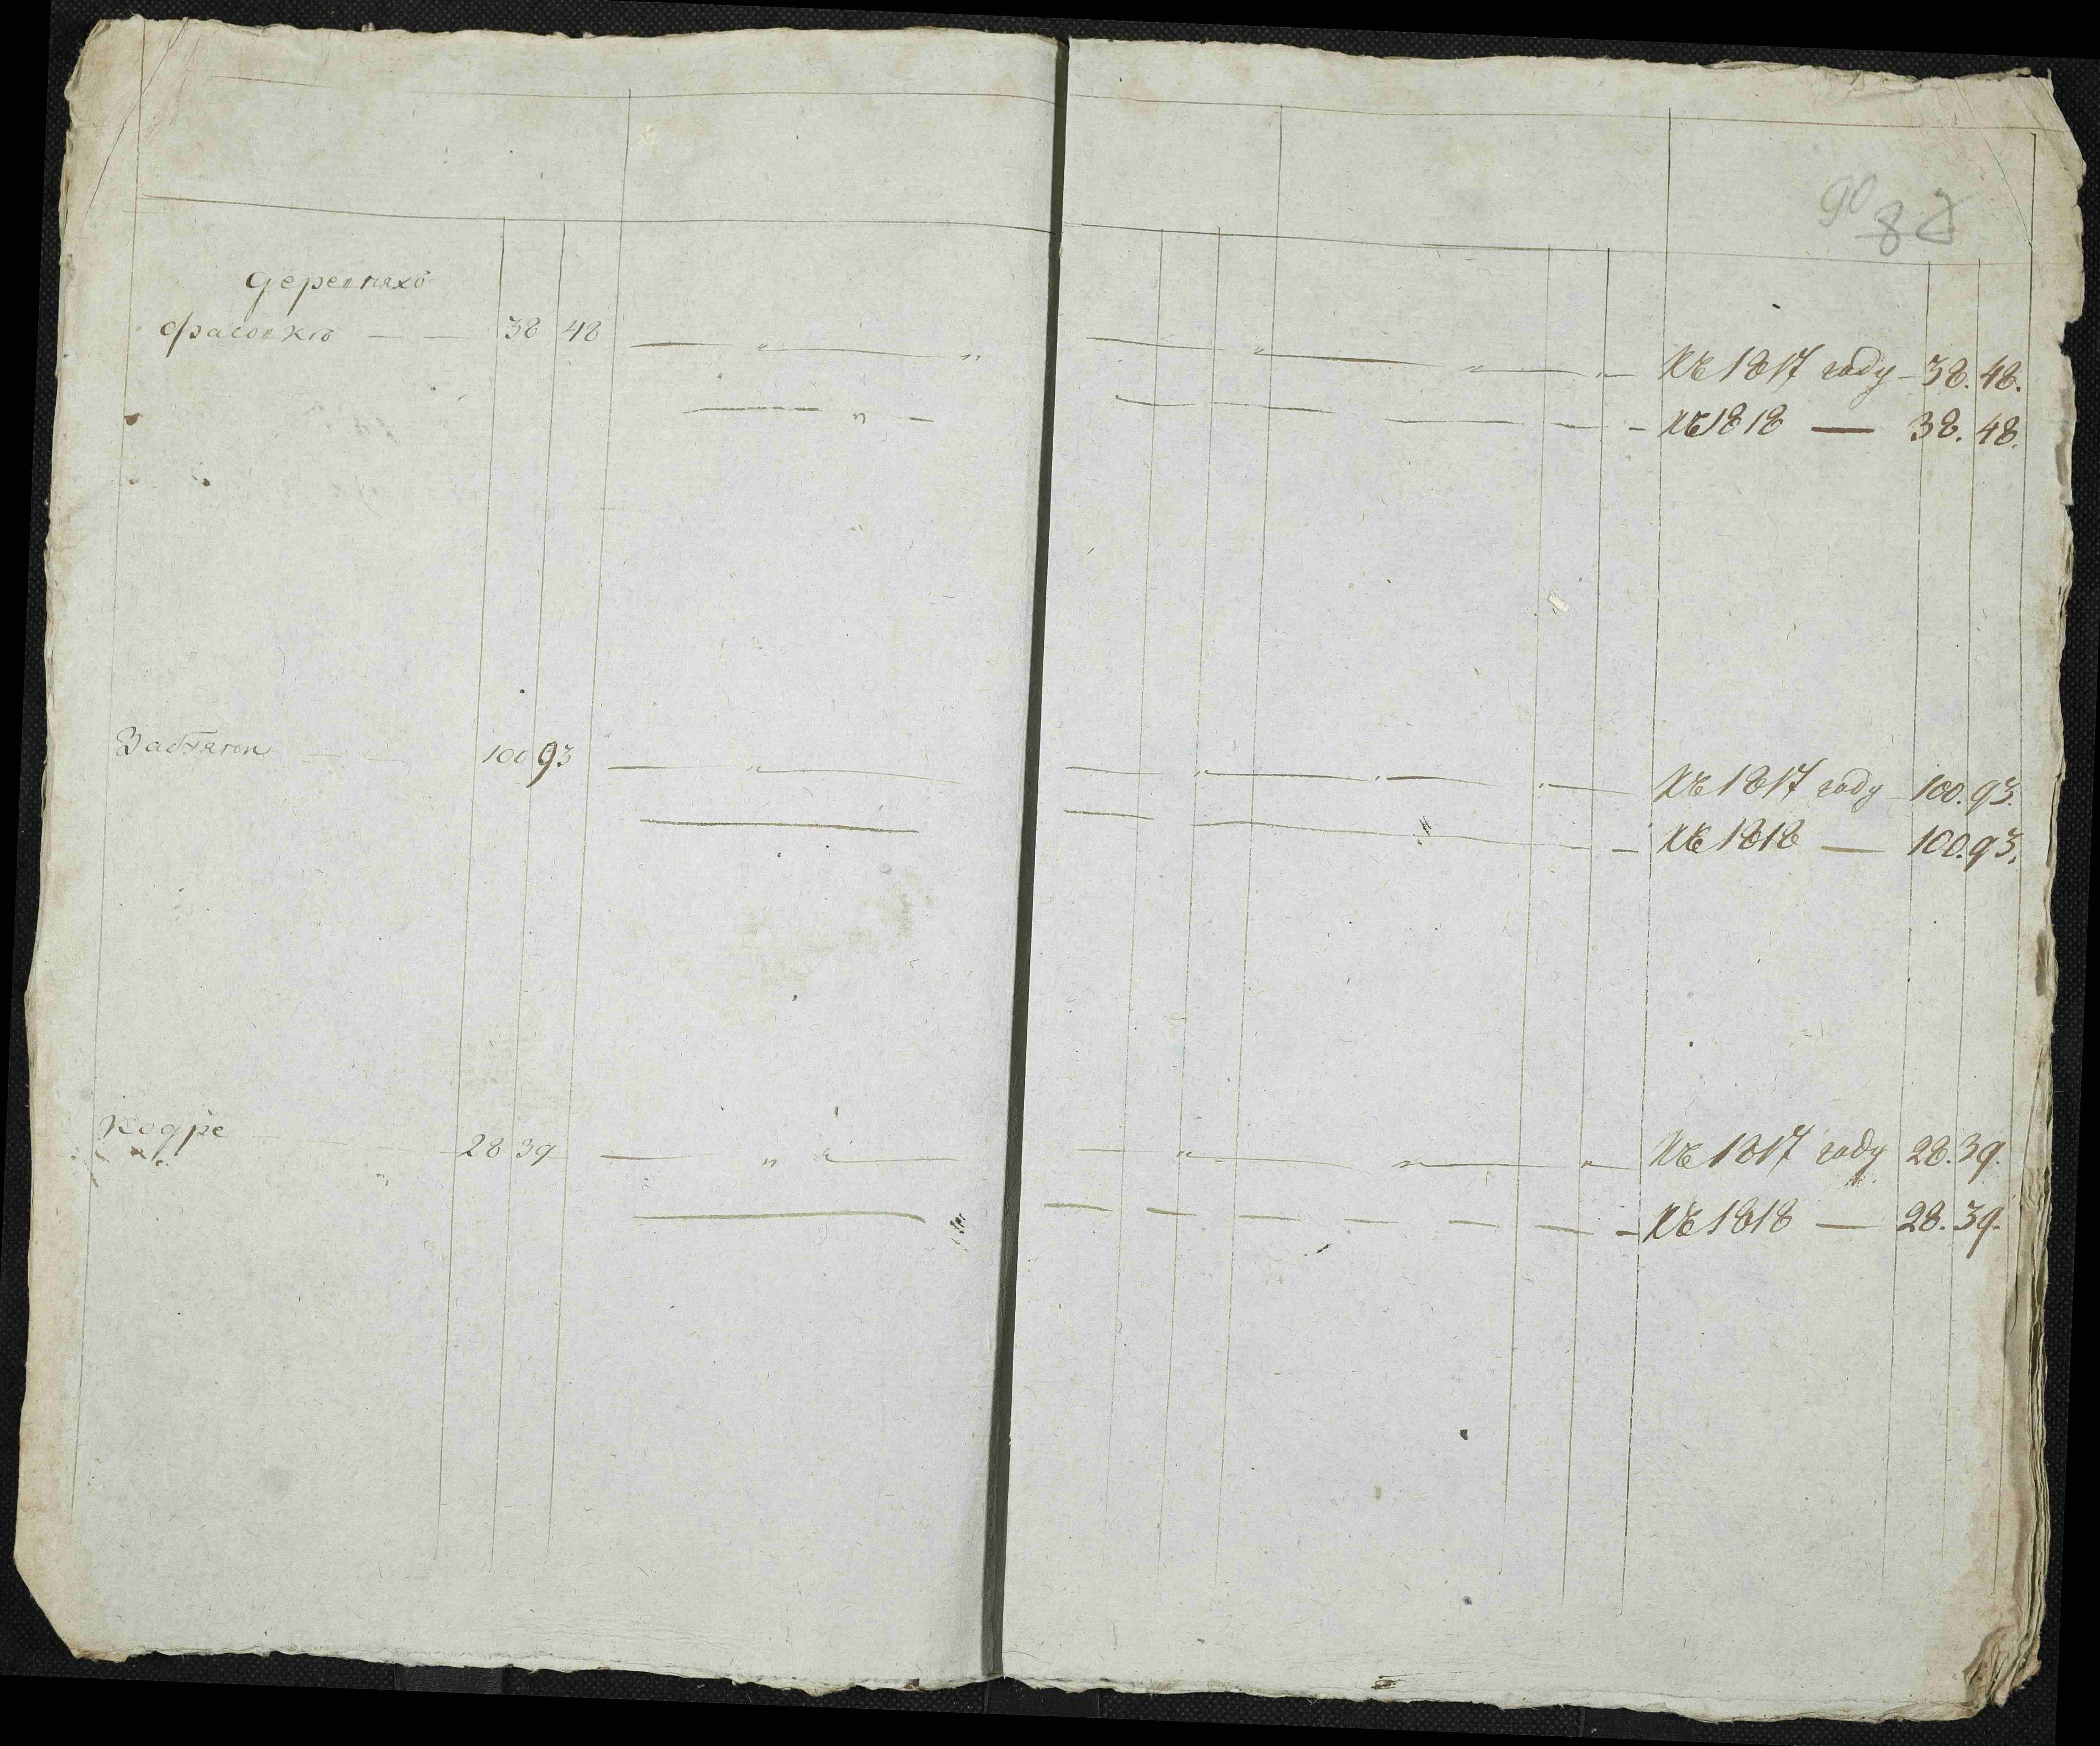 90
82
деревняхъ
Фасовкѣ — — 38 48 — " — " — " — " — " — Къ 1817 году — 38. 48.
— " — — — — — — Къ 1818 — 38. 48.
100 93 — " — — " — " — " — Къ 1817 году 100. 93.
— — — — Къ 1818 — 100. 93.
Кодре — — — 28 39 — " — — " — " — " — Къ 1817 году 28. 39.
— — — — — — — — Къ 1818 — 28. 39.